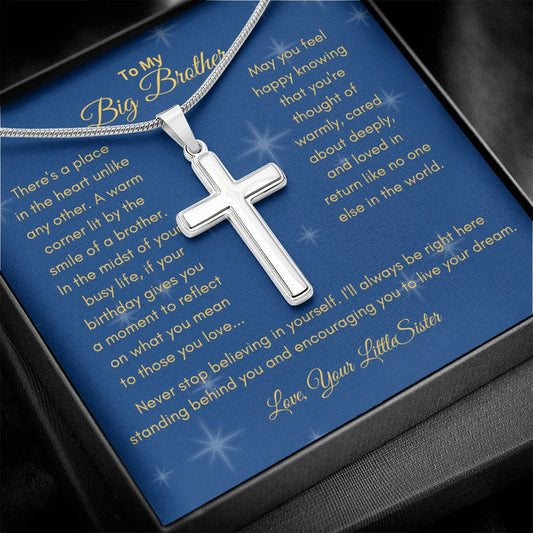 To My
Big Brother
There's a place
in the heart unlike
any other. A warm
corner lit by the
smile of a brother.
In the midst of your
busy life, if your
birthday gives you
a moment to reflect
on what you mean
to those you love...
May you feel
happy knowing
that you're
thought of
warmly, cared
about deeply,
and loved in
return like no one
else in the world.
Never stop believing in yourself. I'll always be right here
standing behind you and encouraging you to live your dream.
Love, Your LittleSister